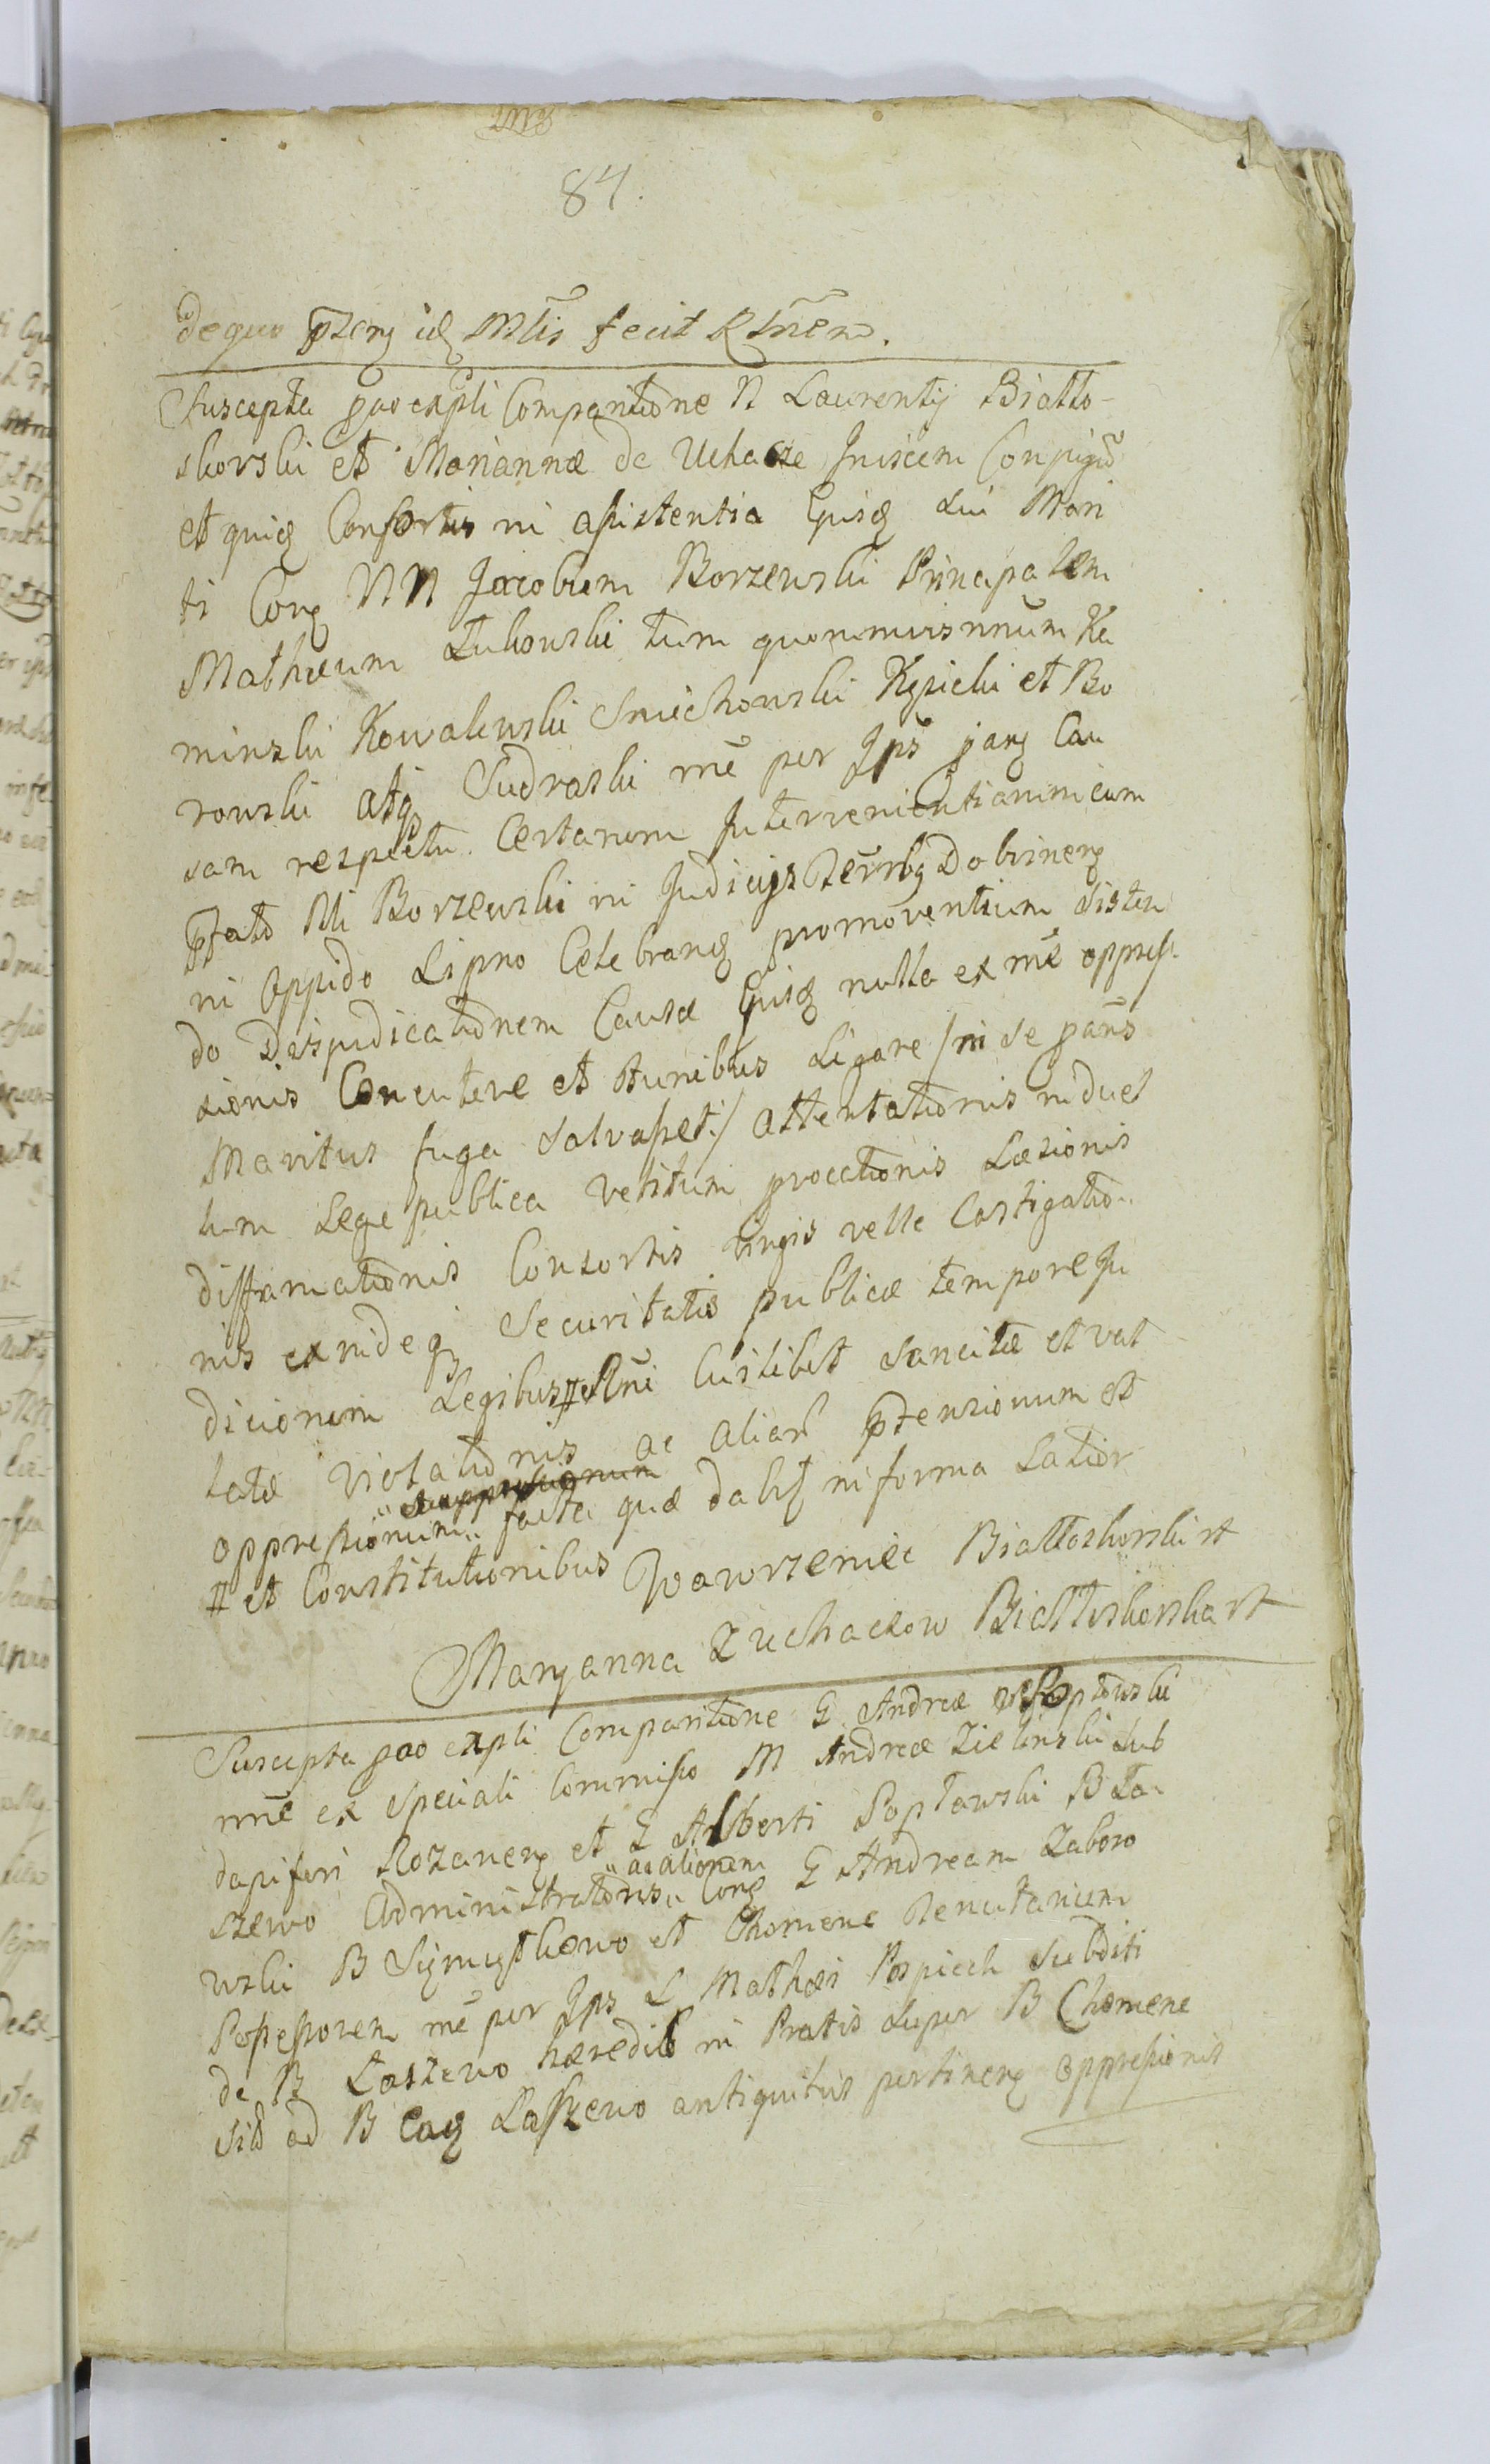 84.
de quo pñs idq Mtis fecit Rtnem.
Suscepta pao expli Comparitione N Laurentij Biatto-
skorski et Mariannæ de Uchacze Invicem Conjugũ
et quiq Consortis in assistentia Ejusq sui Mari
ti Corq NN Jacobum Borzewski Principalem
Mathæum Lukowski tum quonimvis nnum Ka
minski Kowalewski Smichowski Kępicki et Bo
rowski atq Sudraski mẽ per Ips parq Cau
sam respectu Certarum Intervenientiarum cum
pfato Mi Borzewski in Judicijs Terrbq Dobrinenq
in Oppido Lipno Celebranq promoventium disten
do Disjudicationem Causæ Ejusq nulla ex mẽ oppres-
sionis Concutere et Funibus Ligare /: ni se pañs
Maritus fuga salvasset :/ attentationis in duel
lum Lege publica vetitum procationis Læsionis
diffamationis Consortis virgis velle Castigatio-
nis ex indeq Securitatis publicæ tempore Ju
diciorum Legibus # Rñi Cuilibet sancitæ et vat
latæ violationis ac aliar ptensionum et
oppressionum facta quæ dabit in forma Latior
# et Constitutionibus Wawrzeniec Biattoskorski st
Maryanna Zuchackow Biattoskorska st
Suscepta pao expli Comparitione G Andreæ Poptowski
nnẽ ex speciali Commisso M Andreæ Zielinski sub
dapiferi Rozanenq et G Alberti Poptawski B Ła
szewo Administratoris " ac aliorum " Corq G Andream Zaboro
wski B Sigmystkowo et Chomene Tenutarium
Possessorem mẽ per Ips L Mathæi Pospiech subditi
de B Łaszewo hæredit in Pratis super B Chomene
sitis ad B eaq Łaszewo antiquitus pertinenq oppressionis